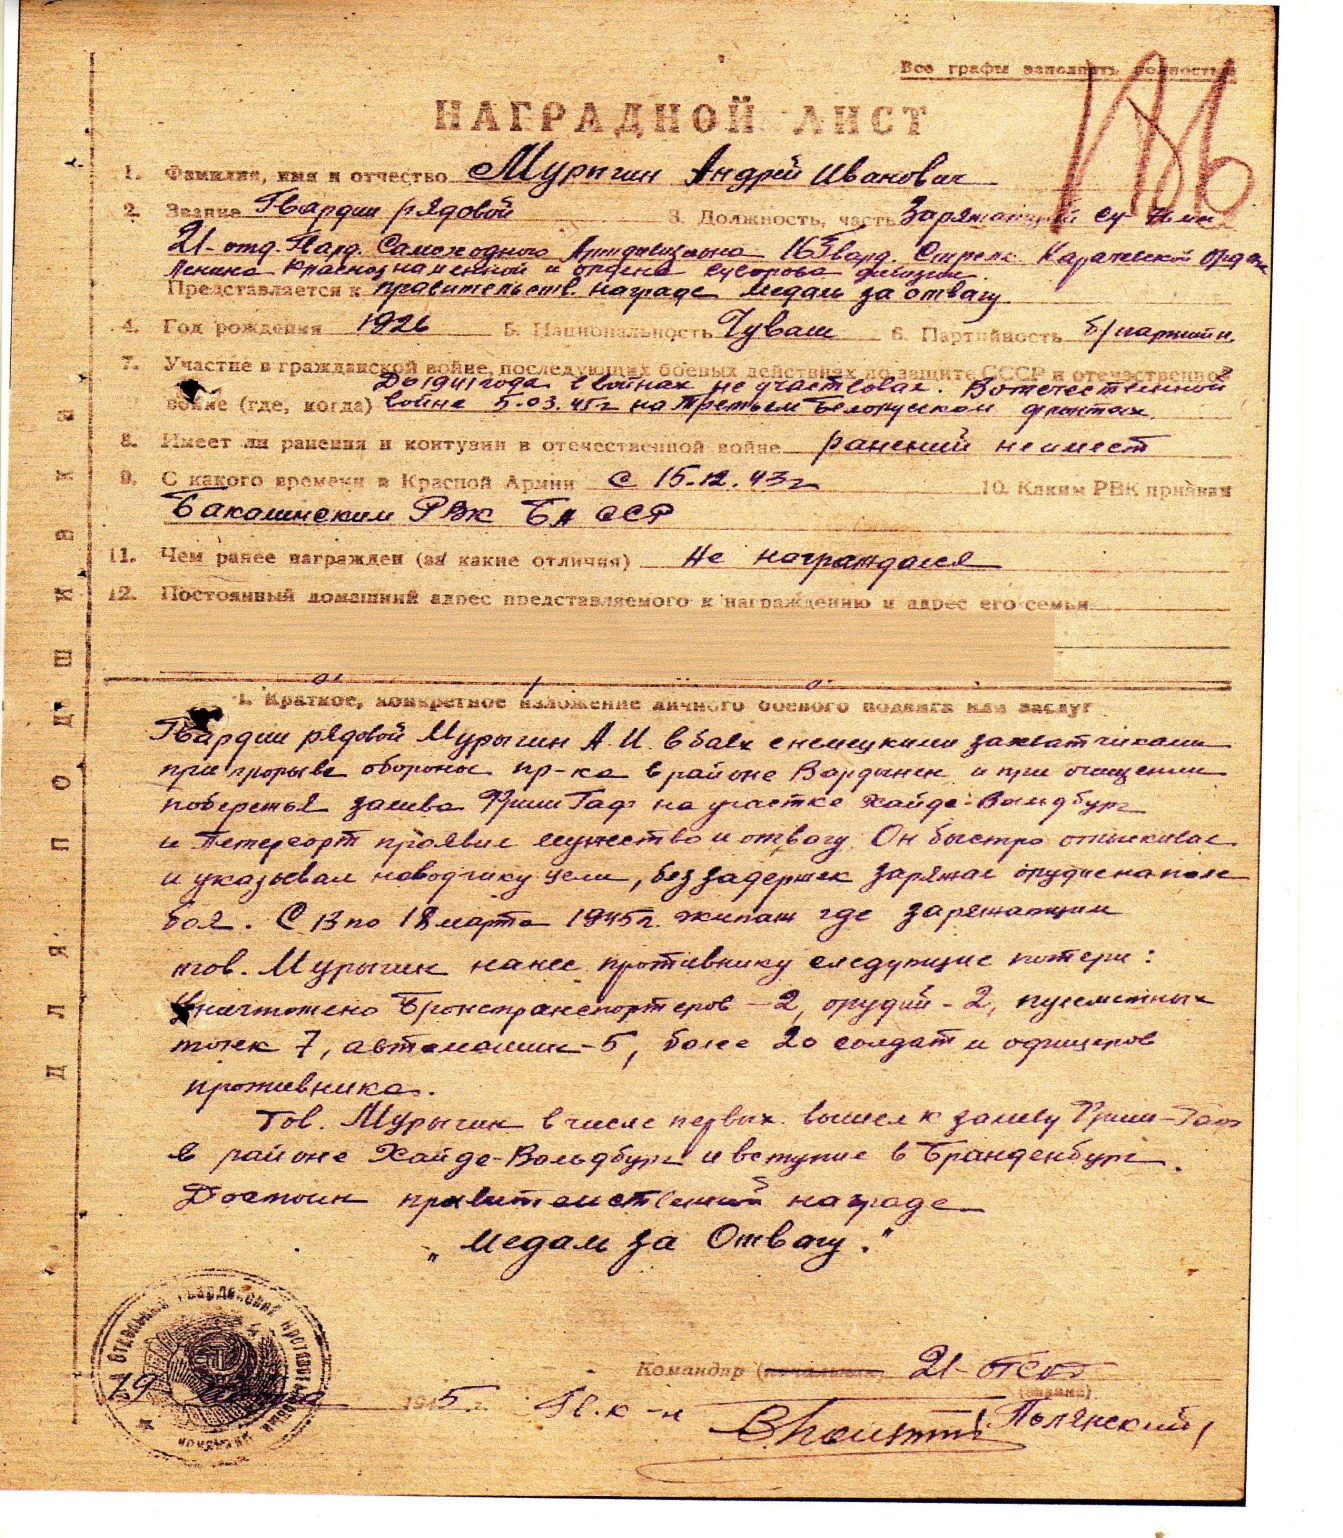 Все графы заполнять полностью
НАГРАДНОЙ ЛИСТ
1. Фамилия, имя и отчество Мурыгин Андрей Иванович
2. Звание Гвардии рядовой 3. Должность, часть Заряжающий Су-
21-отд. Гвард. Самоходного Артдивизиона 16 Гвард. Стрелк. Карельской Орд.
Ленина Краснознаменной и ордена Суворова дивизии.
Представляется к правительств. награде медаль за отвагу
4. Год рождения 1926 5. Национальность Чуваш 6. Партийность б/партийн.
7. Участие в гражданской войне, последующих боевых действиях по защите СССР и отечественной
До 1941 года в войнах не участвовал. В отечественной
войне (где, когда) войне 5.03.45г на Третьем Белорусском фронтах.
8. Имеет ли ранения и контузии в отечественной войне ранений не имеет
9. С какого времени в Красной Армии с 15.12.43г 10. Каким РВК призван
Бакалинским РВК БАССР
11. Чем ранее награжден (за какие отличия) Не награждался
12. Постоянный домашний адрес представляемого к награждению и адрес его семьи
1. Краткое, конкретное изложение личного боевого подвига или заслуг
Гвардии рядовой Мурыгин А.И. в боях с немецкими захватчиками
при прорыве обороны пр-ка в районе и при очищении
побережья залива Фриш Гаф на участке Хайде-Вальдбург
и проявил мужество и отвагу. Он быстро отыскивал
и указывал наводчику цели, без задержек заряжал орудие на поле
боя. С 13 по 18 марта 1945г. экипаж где заряжающим
тов. Мурыгин нанес противнику следующие потери:
Уничтожено Бронетранспортеров - 2, орудий - 2, пулеметных
точек 7, автомашин - 5, более 20 солдат и офицеров
противника.
Тов. Мурыгин в числе первых вышел к заливу Фриш-Гаф
в районе Хайде-Вальдбург и вступил в Бранденбург.
Достоин правительственной награде
„Медаль за Отвагу."
Командир (начальник) 21-
(звание)
19 марта 1945 г. Гв. к-н Полянский
ДЛЯ ПОДШИВКИ